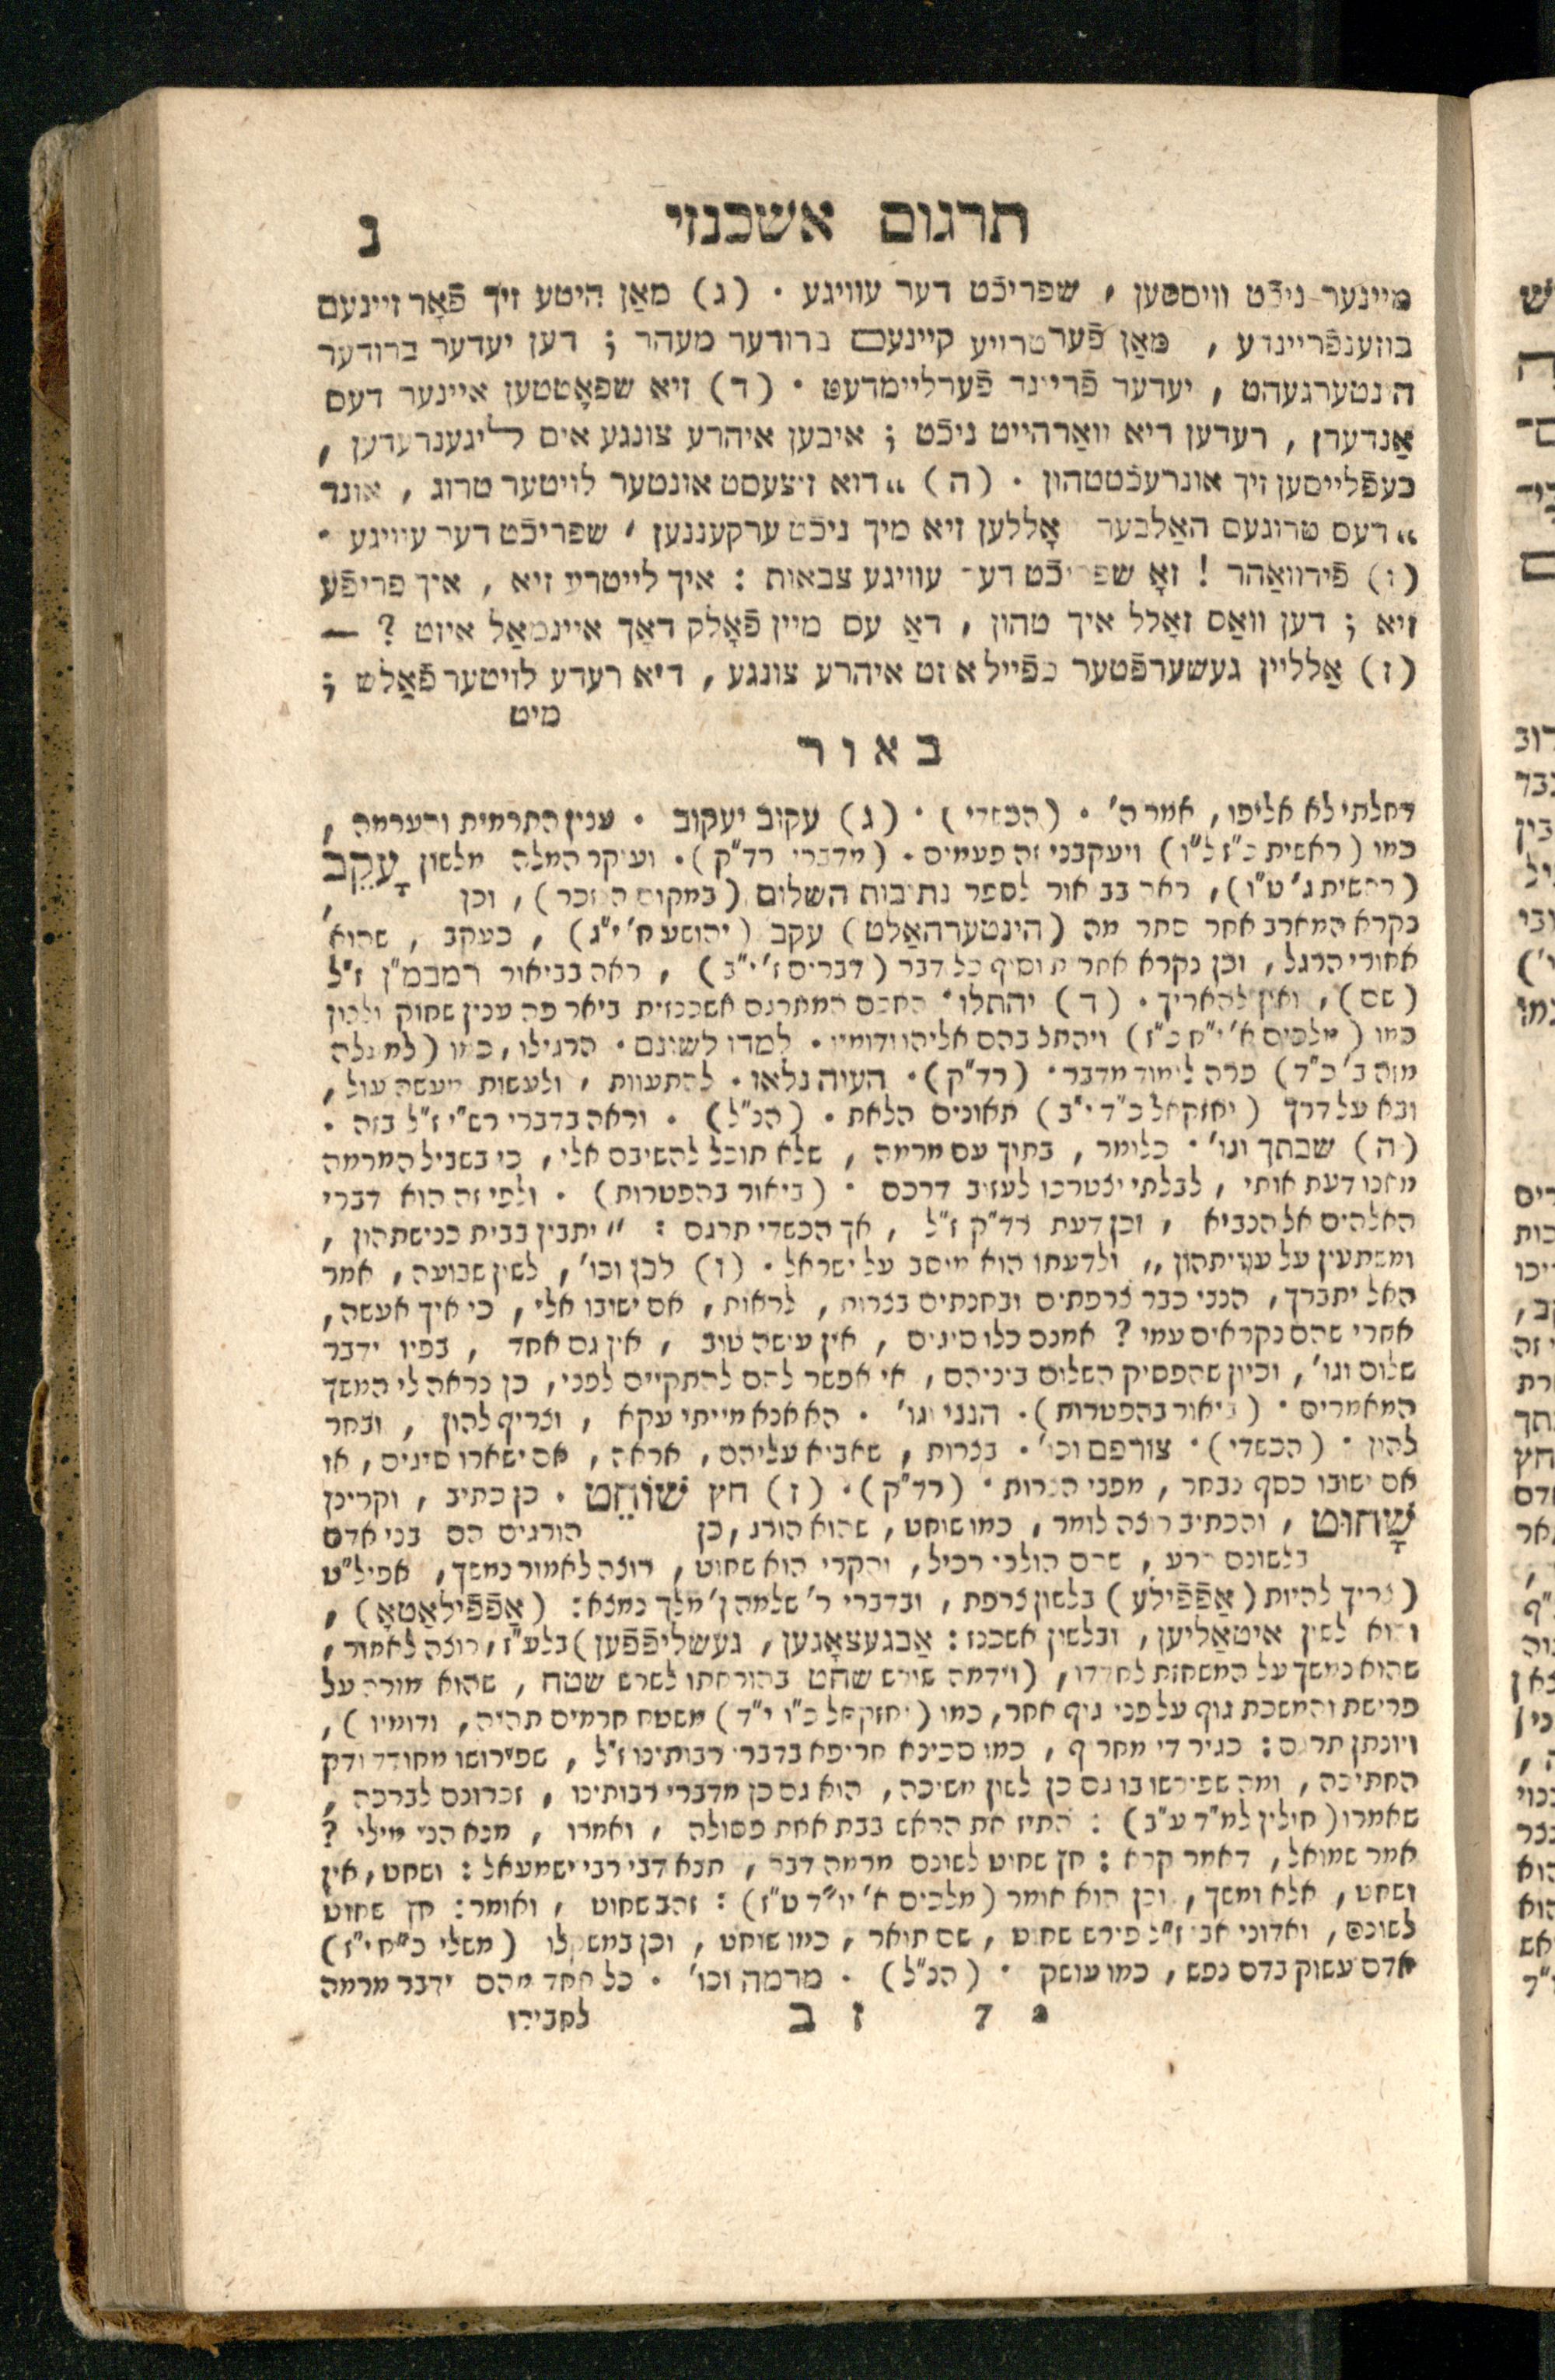 תרגום אשכנזי
נ
מיינער ניכֿט וויססען , שפריכֿט דער עוויגע . (ג) מאַן היטע זיך פֿאָר זיינעם
בוזענפֿריינדע , מאַן פֿערטרויע קיינעם ברודער מעהר ; דען יעדער ברודער
הינטערגעהט , יעדער פֿריינד פֿערליימדעט . (ד) זיא שפּאָטטען איינער דעס
אַנדערן , רעדען דיא וואַרהייט ניכֿט ; איבען איהרע צונגע אים ליגענרעדען ,
בעפֿלייסען זיך אונרעכֿטטהון . (ה) „ דוא זיצעסט אונטער לויטער טרוג , אונד
„ דעס טרוגעס האַלבער וואָללען זיא מיך ניכֿט ערקעננען , שפריכֿט דער עוויגע .
(ו) פֿירוואַהר ! זאָ שפריכֿט דער עוויגע צבאות : איך לייטרע זיא , איך פריפֿע
זיא ; דען וואַס זאָלל איך טהון , דאַ עס מיין פֿאָלק דאָך איינמאַל איזט ? —
(ז) אַלליין געשערפֿטער פֿפֿייל איזט איהרע צונגע , דיא רעדע לויטער פֿאַלש ;
מיט
באור
דחלתי לא אליפו , אמר ה' . (הכשדי) . (ג) עקוב יעקוב . ענין התרמית והערמה ,
כמו (ראשית כ"ז ל"ו) ויעקבני זה פעמים . (מדברי רד"ק) . ועיקר המלה מלשון עָקֵב
(ראשית ג' ט"ו) , ראה בביאור לספר נתיבות השלום (במקום הנזכר) , וכן
נקרא המארב אחר סתר מה (הינטערהאַלט) עקב (יהושע ח' י"ג) , כעקב , שהוא
אחורי הרגל , וכן נקרא אחרית וסוף כל דבר (דברים ז' י"ב) , ראה בביאור רמבמ"ן ז"ל
(שם) , ואין להאריך . (ד) יהתלו . החכם המתרגם אשכנזית ביאר פה ענין שחוק ולצון
כמו (מלכים א' י"ח כ"ז) ויהתל בהם אליהו ודומיו . למדו לשונם . הרגילו , כמו (למעלה
מזה ב' כ"ד) פרה לימוד מדבר . (רד"ק) . העוה נלאו . להתעוות , ולעשות מעשה עול ,
ובא על דרך (יחזקאל כ"ד י"ב) תאונים הלאת . (הנ"ל) . וראה בדברי רש"י ז"ל בזה .
(ה) שבתך וגו' . כלומר , בתוך עם מרמה , שלא תוכל להשיבם אלי , כי בשביל המרמה
מאנו דעת אותי , לבלתי יצטרכו לעזוב דרכם . (ביאור בהפטרות) . ולפי זה הוא דברי
האלהים אל הנביא , וכן דעת רד"ק ז"ל , אך הכשדי תרגם : „ יתבין בבית כנישתהון ,
ומשתעין על עויתהון „ ולדעתו הוא מיסב על ישראל . (ו) לכן וכו' , לשון שבועה , אמר
האל יתברך , הנני כבר צרפתים ובחנתים בצרות , לראות , אם ישובו אלי , כי איך אעשה ,
אחרי שהם נקראים עמי ? אמנם כלו סיגים , אין עושה טוב , אין גם אחד , בפיו ידבר
שלום וגו' , וכיון שהפסיק השלום ביניהם , אי אפשר להם להתקיים לפני , כן נראה לי המשך
המאמרים . (ביאור בהפטרות) . הנני וגו' . הא אנא מייתי עקא , וצריף להון , ובחר
להון . (הכשדי) . צורפם וכו' . בצרות , שאביא עליהם , אראה , אם ישארו סיגים , או
אם ישובו כסף נבחר , מפני הצרות . (רד"ק) . (ז) חץ שׁוֹחֵט . כן כתיב , וקרינן
שָׁחוּט , והכתיב רוצה לומר , כמו שוחט , שהוא הורג , כן הורגים הם בני אדם
בלשונם הרע , שהם הולכי רכיל , והקרי הוא שחוט , רוצה לאמור נמשך , אפיל"ט
(צריך להיות (אַפֿפֿילע) בלשון צרפת , ובדברי ר' שלמה ן' מלך נמצא : (אַפֿפֿילאַטאָ) ,
והוא לשון איטאַליען , ובלשון אשכנז : אַבגעצאָגען , געשליפֿפֿען) בלע"ז , רוצה לאמור ,
שהוא נמשך על המשחזת לחדדו , (וידמה שורש שחט בהוראתו לשרש שטח , שהוא מורה על
פרישת והמשכת גוף על פני גוף אחר , כמו (יחזקאל כ"ו י"ד) משטח חרמים תהיה , ודומיו) ,
ויונתן תרגם : כגיר די מחריף , כמו סכינא חריפא בדברי רבותינו ז"ל , שפירושו מחודד ודק
החתיכה , ומה שפירשו בו גם כן לשון משיכה , הוא גם כן מדברי רבותינו , זכרונם לברכה ,
שאמרו (חולין למ"ד ע"ב) : התיז את הראש בבת אחת פסולה , ואמרו , מנא הני מילי ?
אמר שמואל , דאמר קרא : חץ שחוט לשונם מרמה דבר , תנא דבי רבי ישמעאל : ושחט , אין
ושחט , אלא ומשך , וכן הוא אומר (מלכים א' יו"ד ט"ז) : זהב שחוט , ואומר : חץ שחוט
לשונם , ואדוני אבי ז"ל פירש שחוט , שם תואר , כמו שוחט , וכן במשקלו (משלי כ"ח י"ז)
אדם עשוק בדם נפש , כמו עושק . (הנ"ל) . מרמה וכו' . כל אחד מהם ידבר מרמה
ז ב
לחבירו